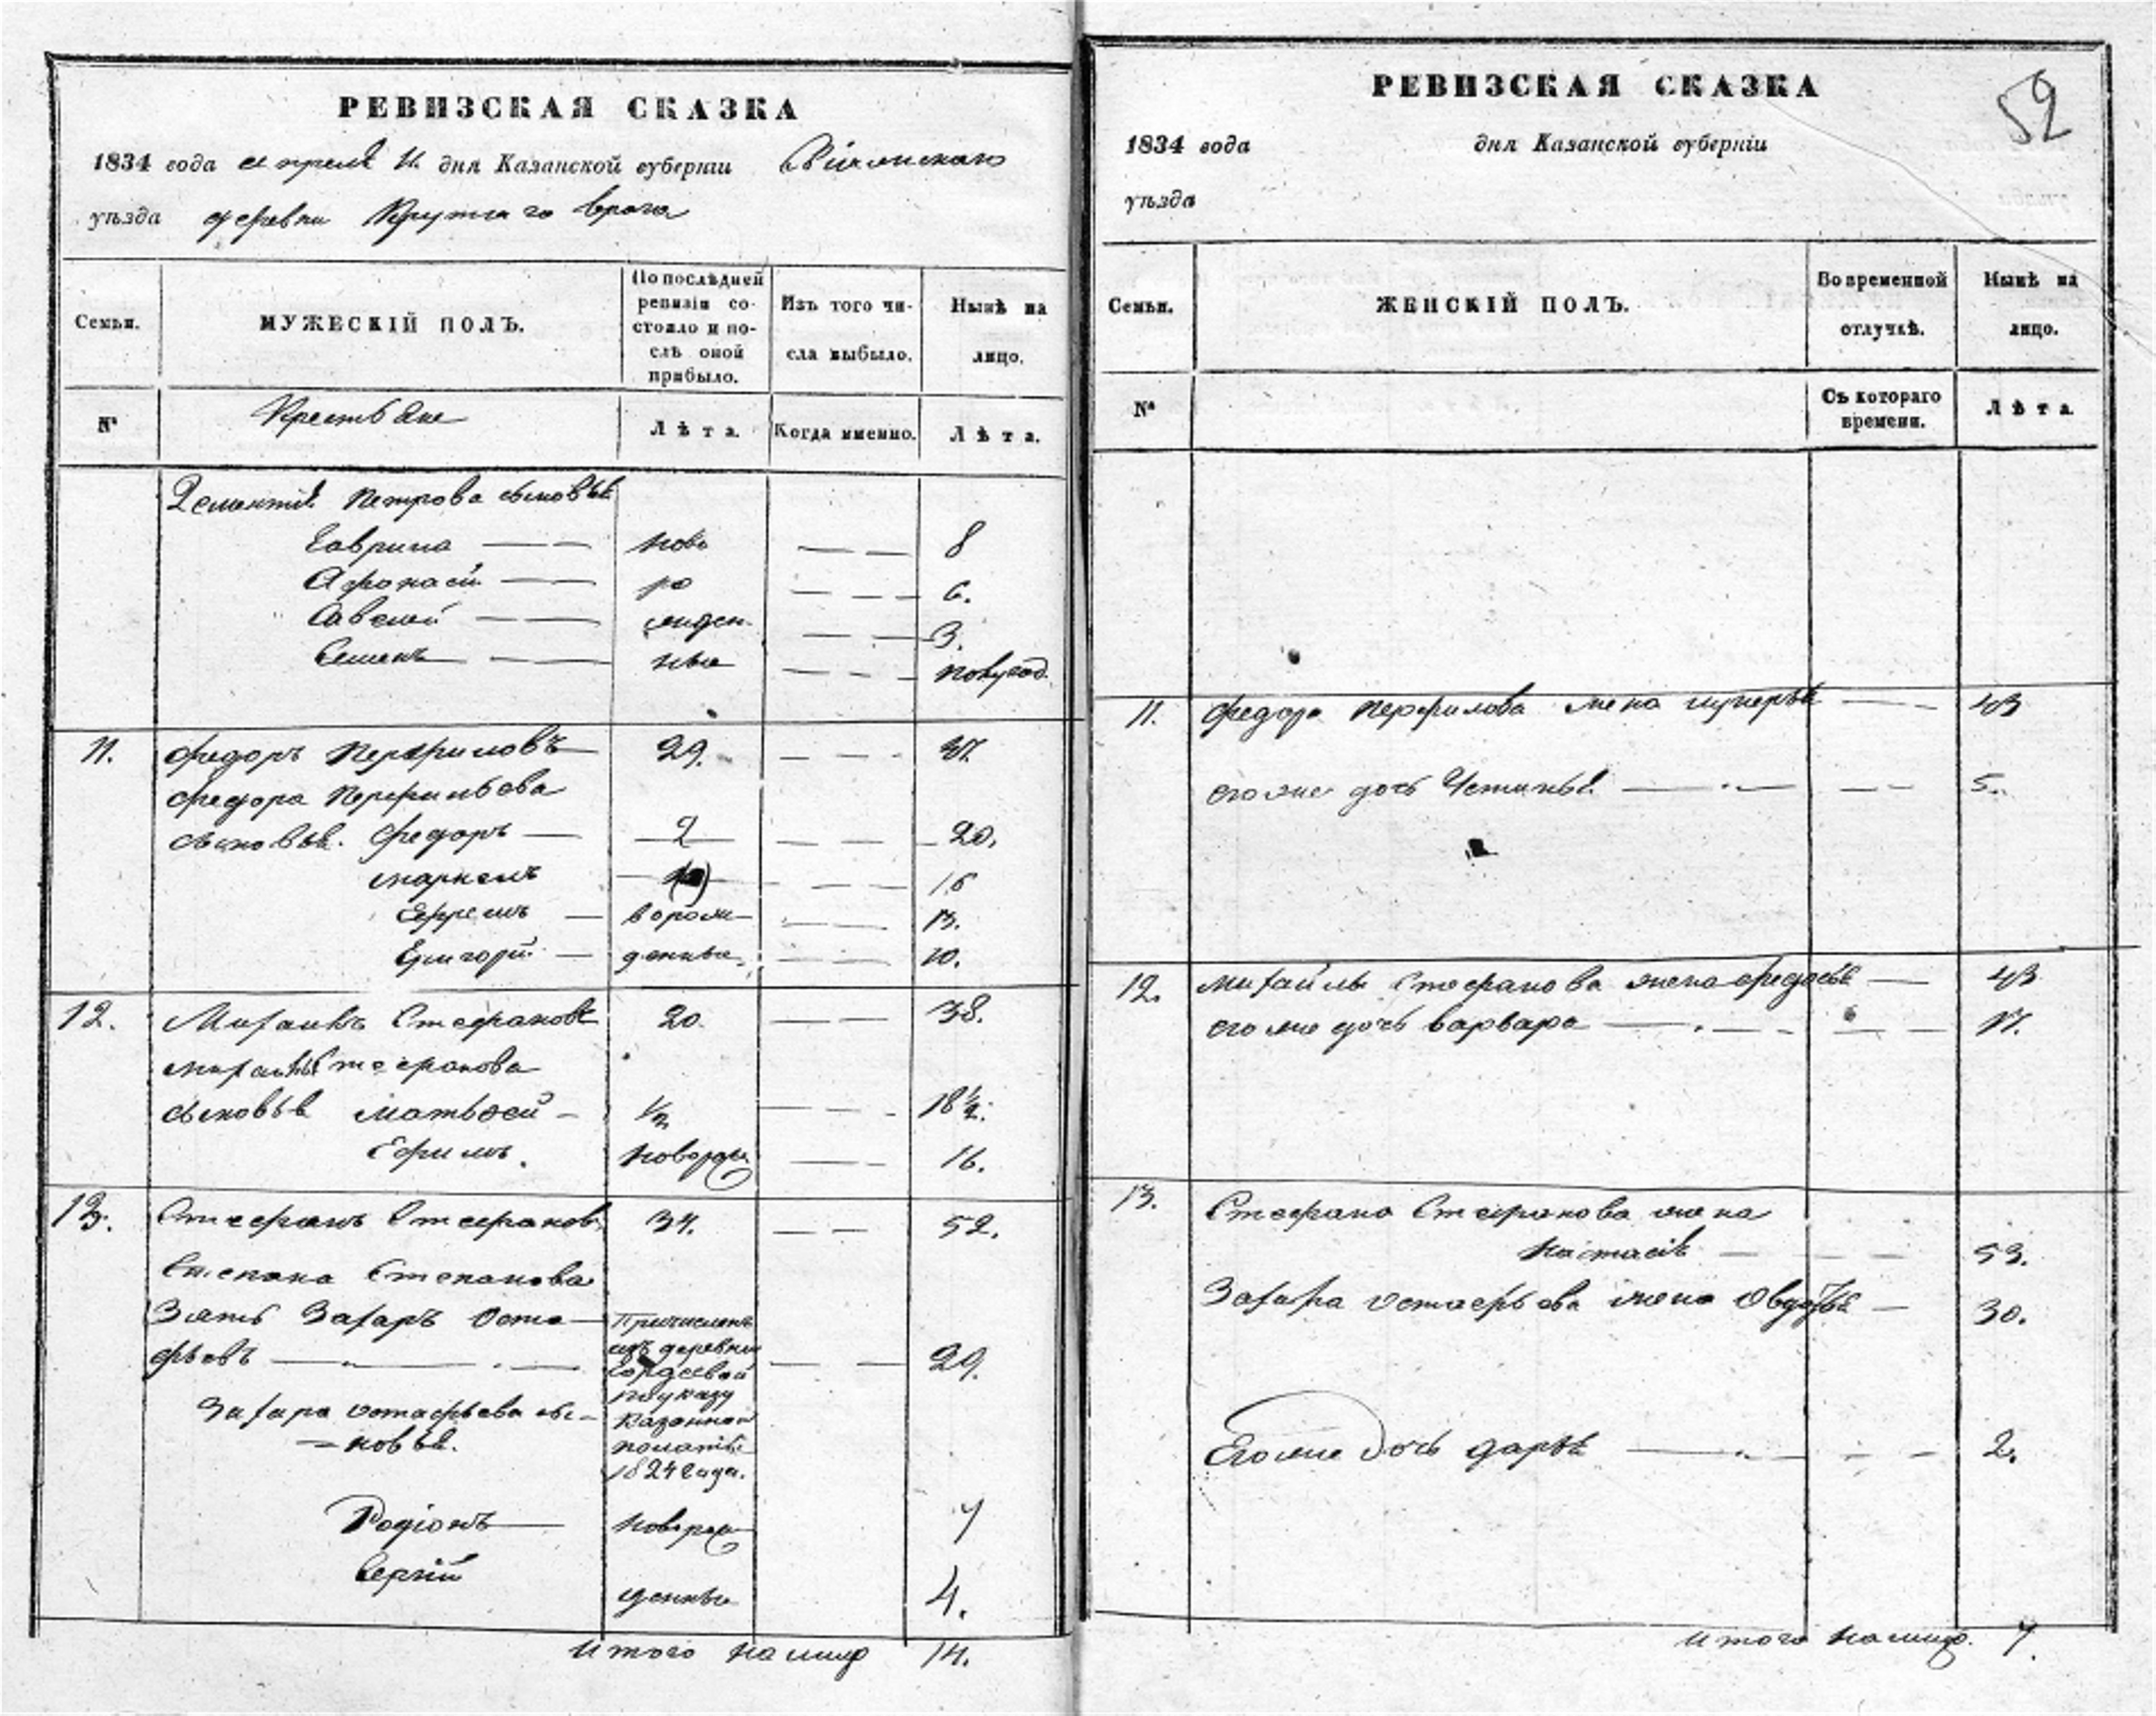 РЕВИЗСКАЯ СКАЗКА
1834 года апреля 11 дня Казанской губерніи
уѣзда деревни Крутаго врага
Семьи.
МУЖЕСКІЙ ПОЛЪ.
По послѣдней ревизіи состояло и послѣ оной прибыло.
Изъ того числа выбыло.
Нынѣ на лицо.
№
Крестьяне
Лѣта.
Когда именно.
Лѣта.
Дементія Петрова сыновья
Гаврила — — ново — — 8
Афонасій — ро — — — 6.
Савелей — — жден — — 3.
Семенъ — — ные — — — полугод.
11. Федоръ Перфиловъ — 29. — — — 37.
Федора Перфильева
сыновья. Федоръ — 2 — — — 20.
Маркелъ — — — 16
Ефремъ — ворож — — — 13.
Григорій — денные — — — 10.
12. Михаилъ Стефановъ 20. — — 38.
Михаилы Стефанова
сыновья Матвей — 1/2 — — — 18 1/2.
Ефимъ. новорож — — 16.
13. Стефанъ Стефановъ 34. — — 52.
Степана Степанова
Зять Захаръ Оста —
фьевъ — — — — — 29.
Причисленъ
изъ деревни
Гордеевой
по указу
Казенной
полаты
1824 года.
Захара Остафьева сы-
— новья.
Родіонъ — новорож 7
Сергій
денные 4.
Итого на лицо 14.
РЕВИЗСКАЯ СКАЗКА
52
1834 года дня Казанской губерніи
уѣзда
Семьи.
ЖЕНСКІЙ ПОЛЪ.
Во временной отлучкѣ.
Нынѣ на лицо.
№
Съ котораго времени.
Лѣта.
11. Федора Перфилова жена — — 43
его же дочь Устинья — — — — — 5.
12. Михайлы Стефанова жена Федосья — 43
его же дочь Варвара — — — — — 17.
13. Стефана Стефанова жена
Настасія — — — 53.
Захара Остафьева жена Овдотья — 30.
Его же дочь Дарья — — — — 2.
Итого на лицо. 7.